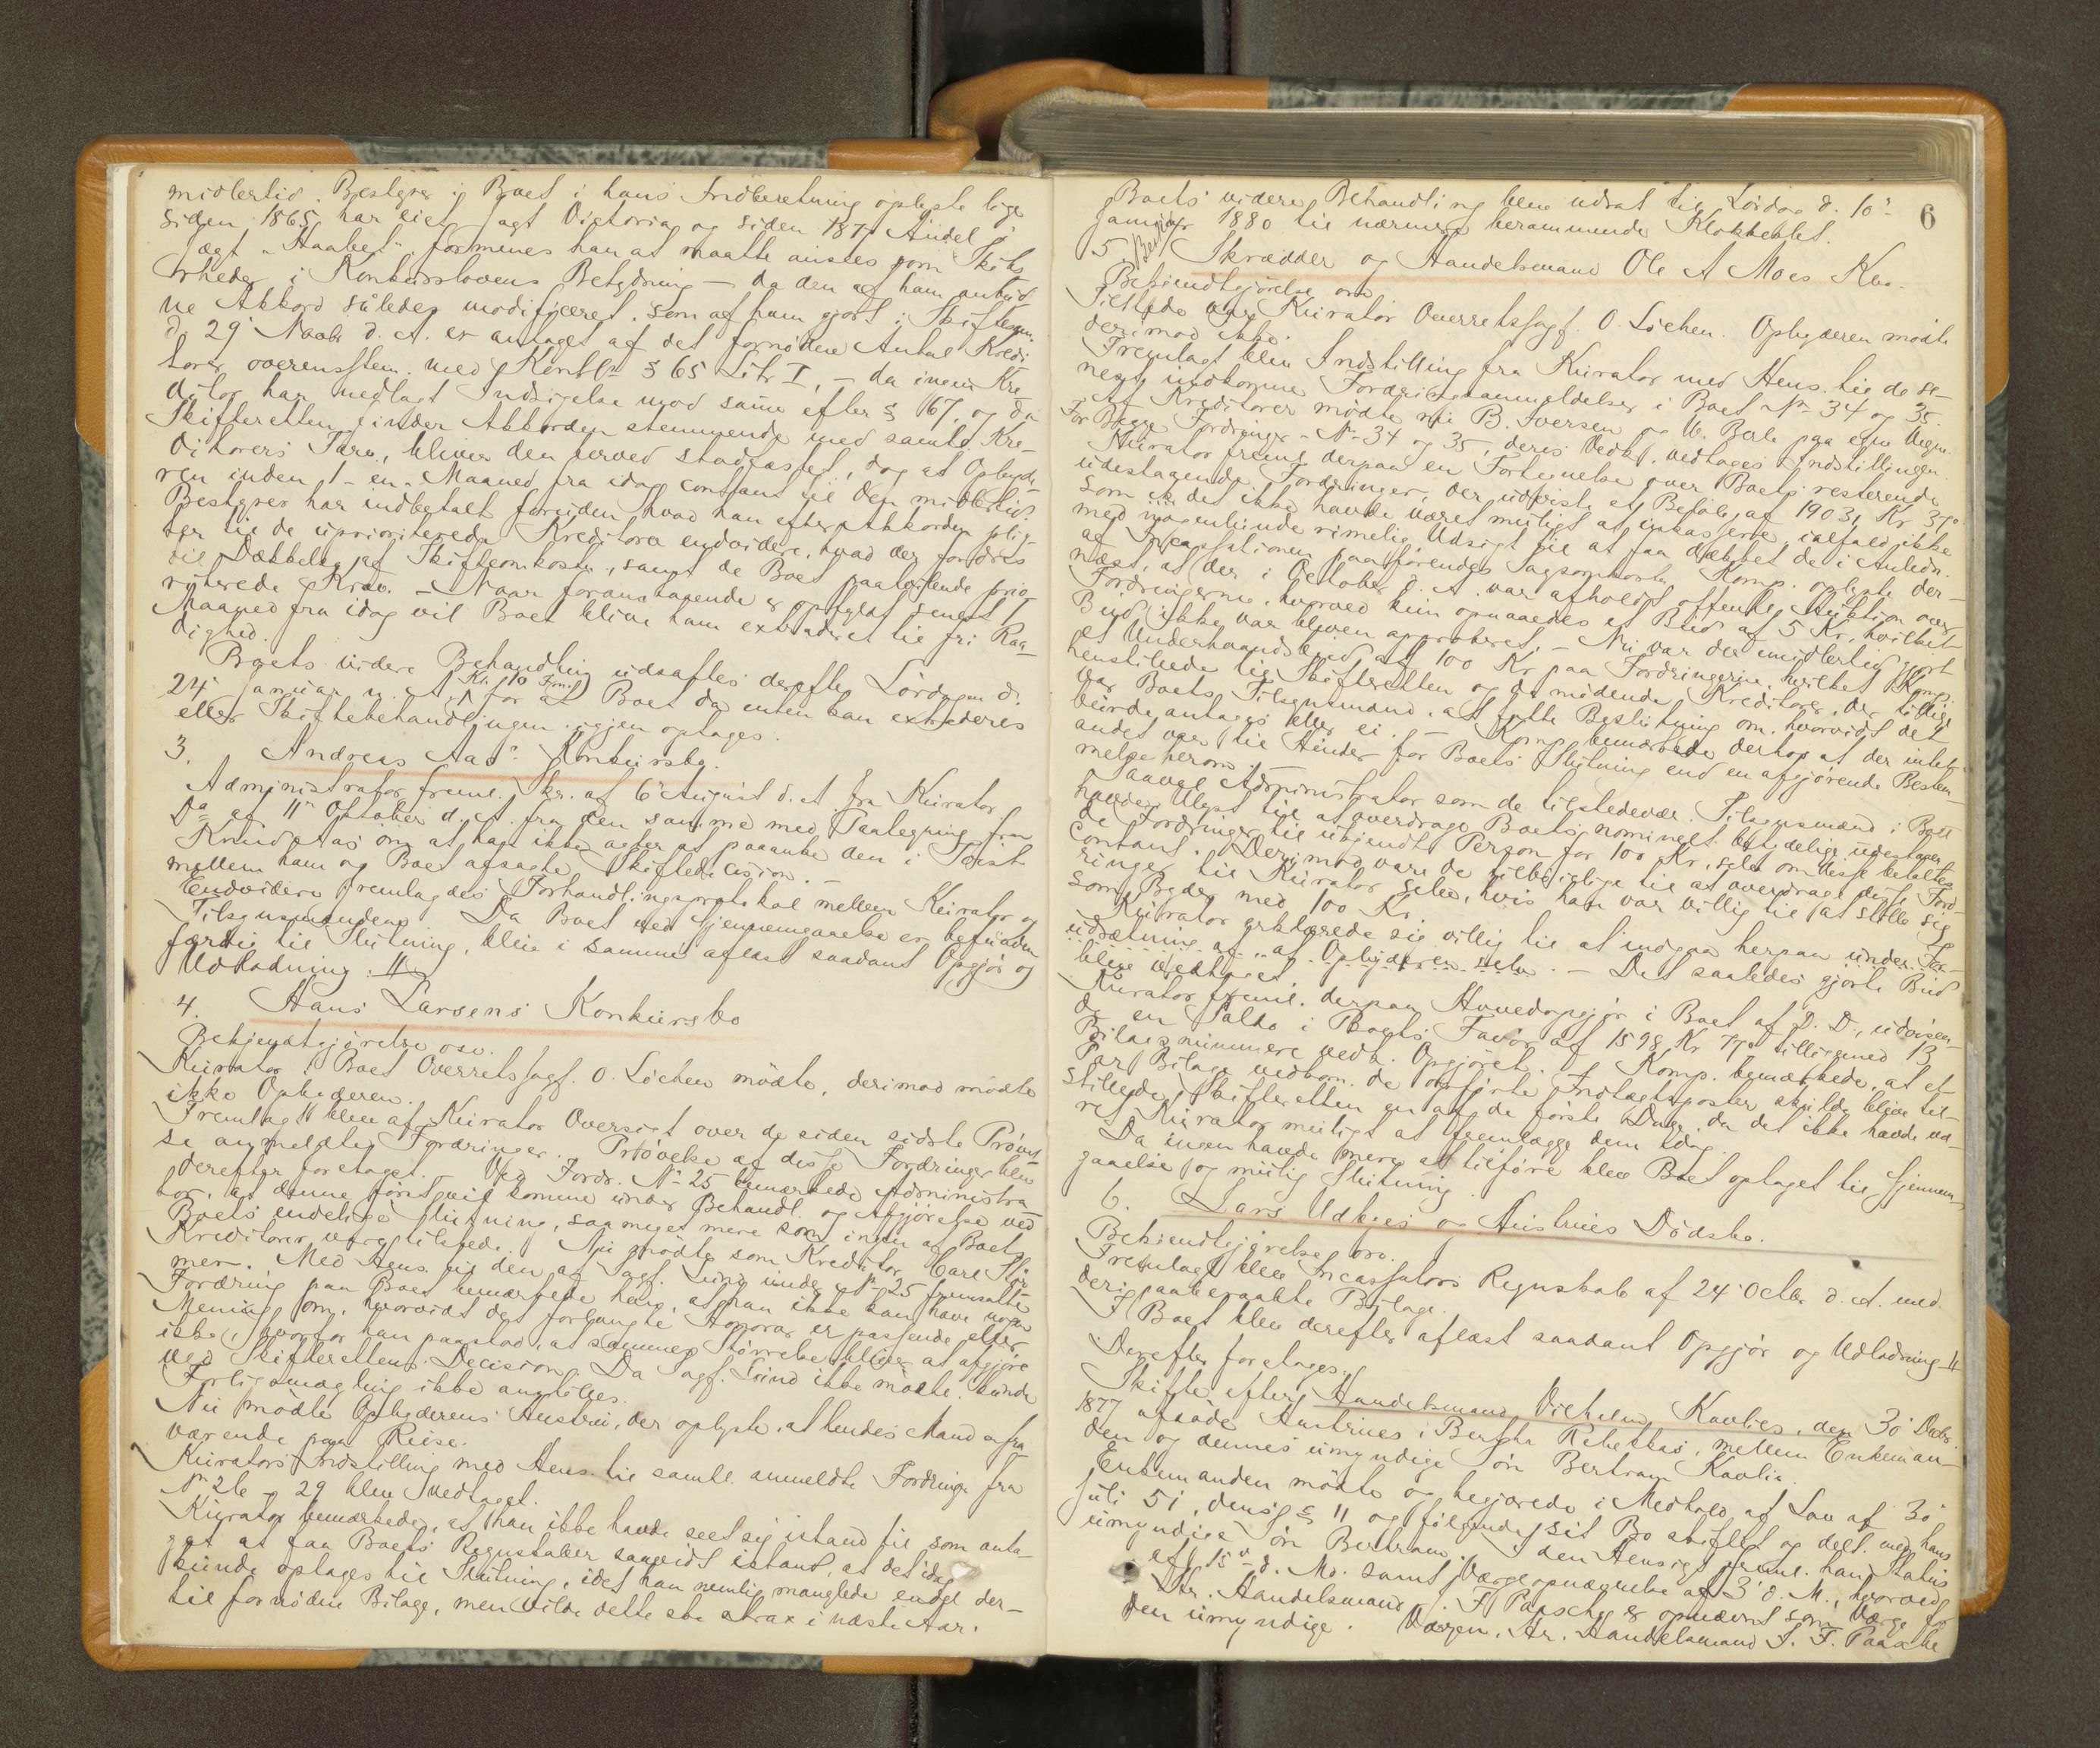 midlertid. Bestyrer i Boet i hans Indberetning oplyste lige
siden 1865 har eiet Jagt Victoria og siden 187 Andel i
Jægt "Haabet" formenes han at maatte ansees som Skibs
rheder i Konkurslovens Betydning – da den af ham anbud
ne Akkord således modificeret, som af ham gjort i Skiftesam.
d. 29' Novb. d. A. er antaget af det fornødne Antal Kredi
torer overensstem. med Konkl. § 65 Litr I, – da ingen Kre
ditor har nedlagt Indsigelse mod samme efter § 167, og da
Skifteretten finder Akkorden stemmende med samtl. Kre-
ditorers Tarv, bliver den herved stadfæstet, dog at Opbyde
ren inden 1 – en – Maaned fra idag contant til den midlertid.
Bestyrer har indbetalt forinden hvad han efter Akkorden plig-
ter til de uprioriterede Kreditorer endvidere, hvad der fordres
til Dækkelse af Skifteomkostn., samt de Boet paahvilende prio-
riterede Krav. – Naar foranstaaende er opfyldt senest 1
Maaned fra idag vil Boet blive ham extraderet til fri Raa-
dighed.
Boets videre Behandling udsattes derefter Lördagen d.
24' Januar n. A. Kl. 10 Form. for at Boet da enten kan extraderes
eller Skiftebehandlingen igjen optages.
3. Andreas Aas' Konkursbo.
Administrator freml. Skr. af 6' August d. A. fra Kurator
Da af 11' Oktober d. A. fra den samme med Paategning fra
Knud Aas om at han ikke agter at paaanke den i Tvist
mellem ham og Boet afsagte Skiftedecision. –
Endvidere fremlagdes Forhandlingsprotokol mellem Kurator og
Tilsynsmændene. Da Boet ved Gjennemgaaelse er befunden
færdig til Slutning, blev i samme aflæst saadant Opgjør og
Udlodning: //
4. Hans Larsens Konkursbo
Bekjendtgjörelse osv.
Kurator i Boet Overretssagf. O. Lochen mödte, derimod mödte
ikke Opbyderen.
Fremlagt blev af Kurator Oversigt over de siden sidste Prövel
se anmeldte Fordringer. Prövelse af disse Fordringer blev
derefter foretaget. – Ved Fordr. No 25 bemærkede Administra
tor, at denne först vil komme under Behandl. og Afgjörelse ved
Boets endelige Slutning, saa meget mere som ingen af Boets
Kreditorer vare tilstede. Nu mödte som Kreditor Carl Stör
mer. Med Hens. til den af Sagf. Lund under No 25 fremsatte
Fordring paa Boet bemærkede han, at han ikke kan have nogen
Mening om, hvorvidt det forlangte Honorar er passende eller
ikke, hvorfor han paastod, at sammes Störrelse bliver at afgjöre
ved Skifterettens Decision. Da Sagf. Lund ikke mödte, kunde
Forligsmægling ikke anstilles.
Nu mödte Opbyderens Hustru, der oplyste, at hendes Mand er fra
værende paa Reise.
Kurators Indstilling med Hens. til samtl. anmeldte Fordringer fra
No 26 – 29 blev vedtaget.
Kurator bemærkede, at han ikke havde seet sig istand til som anta-
get at faa Boets Regnskaber saavidt istand, at det idag
kunde optages til Slutning, idet han nemlig manglede endel der-
til fornödne Bilage, men vilde dette ske strax i næste Aar.
6
Boets videre Behandling blev udsat til Lördag d. 10'
Januar 1880 til nærmere berammende Klokkeslet.
5 Skrædder og Handelsmand Ole A Moes Kbo.
Bekjendtgjörelse osv.
Tilstede var Kurator Overretssagf. O. Lochen. Opbyderen mödte
derimod ikke.
Fremlagt blev Indstilling fra Kurator med Hens. til de se-
nest indkomne Fordringsanmeldelser i Boet No 34 og 35.
Af Kreditorer mödte nu B. Iversen og W. paa egne Vegne.
For Begge Fordringer – No 34 og 35, deres Vedk. vedtages Indstillingen.
Kurator freml. derpaa en Fortegnelse over Boets resterende
udestaaende Fordringer, der udviste et Belöb af 1903 Kr 37
som det ikke havde været muligt at inkassere, ialfald ikke
med nogenlunde rimelig Udsigt til at faa dækket de i Anledn.
af Incassationen paaförendes Sagsomkostn. Komp. oplyste der-
næst, at der i October d. A. var afholdt offentlig Auktion over
Fordringerne, hvorved kun opnaaedes et Bud af 5 Kr, hvilket
Bud ikke var bleven approberet. – Nu var der imidlertid gjort
et Underhaandsbud af 100 Kr paa Fordringerne, hvilket Komp.
henstillede til Skifteretten og de mødende Kreditorer, der tillige
var Boets Tilsynsmænd, at fatte Beslutning om, hvorvidt det
burde antages eller ei. – Komp. bemærkede derhos at der intet
andet var til Hinder for Boets Slutning end en afgjörende Bestem-
melse herom.
Saavel Administrator som de tilstedevær. Tilsynsmænd i Boet
havde Ulyst til at overdrage Boets nominelt betydelige udestaaen
de Fordringer til ubekjendt Person for 100 Kr, selv om disse betaltes
contant. Derimod vare de tilbøielige til at overdrage disse Ford-
ringer til Kurator selv, hvis han var villig til at stille sig
som Byder med 100 Kr.
Kurator erklærede sig villig til at indgaa herpaa under For-
udsætning af "at Opbyderen selv. – Det saaledes gjorte Bud
blev vedtaget.
Kurator freml. derpaa Hovedopgjör i Boet af D. D., udvisen-
de en Saldo i Boets Favör af 1598 Kr 77 tilligemed 13
Bilagsnummere vedk. Opgjöret. Komp. bemærkede, at et
Par Bilage vedkom. de opfjörte Indtægtsposter skulde blive til-
stillede Skifteretten en af de förste Dage, da det ikke havde væ-
ret Kurator muligt at fremlægge dem idag.
Da ingen havde mere at tilföre blev Boet optaget til Gjennem-
gaaelse og mulig Slutning.
6. Lars Udbyes og Hustrues Dödsbo.
Bekjendtgjörelse osv.
Fremlagt blev Incassators Regnskab af 24' Octbr d. A. med
deri paaberaabte Bilage.
I Boet blev derefter aflæst saadant Opgjör og Udlodning //
Derefter foretages:
Skifte efter Handelsmand Vilhelm Kavlies, den 30' Decbr
1877 afdöde Hustrues, Bergitte Rebekka, mellem Enkeman-
den og dennes umyndige Sön Bertram Kavlie.
Enkemanden mödte og begjærede i Medhold af Lov af 30'
Juli 51, dens § 11 og fölgende, sit Bo skiftet og delt med hans
umyndige Sön Bertram. I den Hensigt freml. han Status
af 15' d. M. samt Værgeopnævnelse af 3' d. M., hvorved
Hr. Handelsmand J. F. Paasche er opnævnt som Værge for
den umyndige. Værgen, Hr. Handelsmand J. F. Paasche